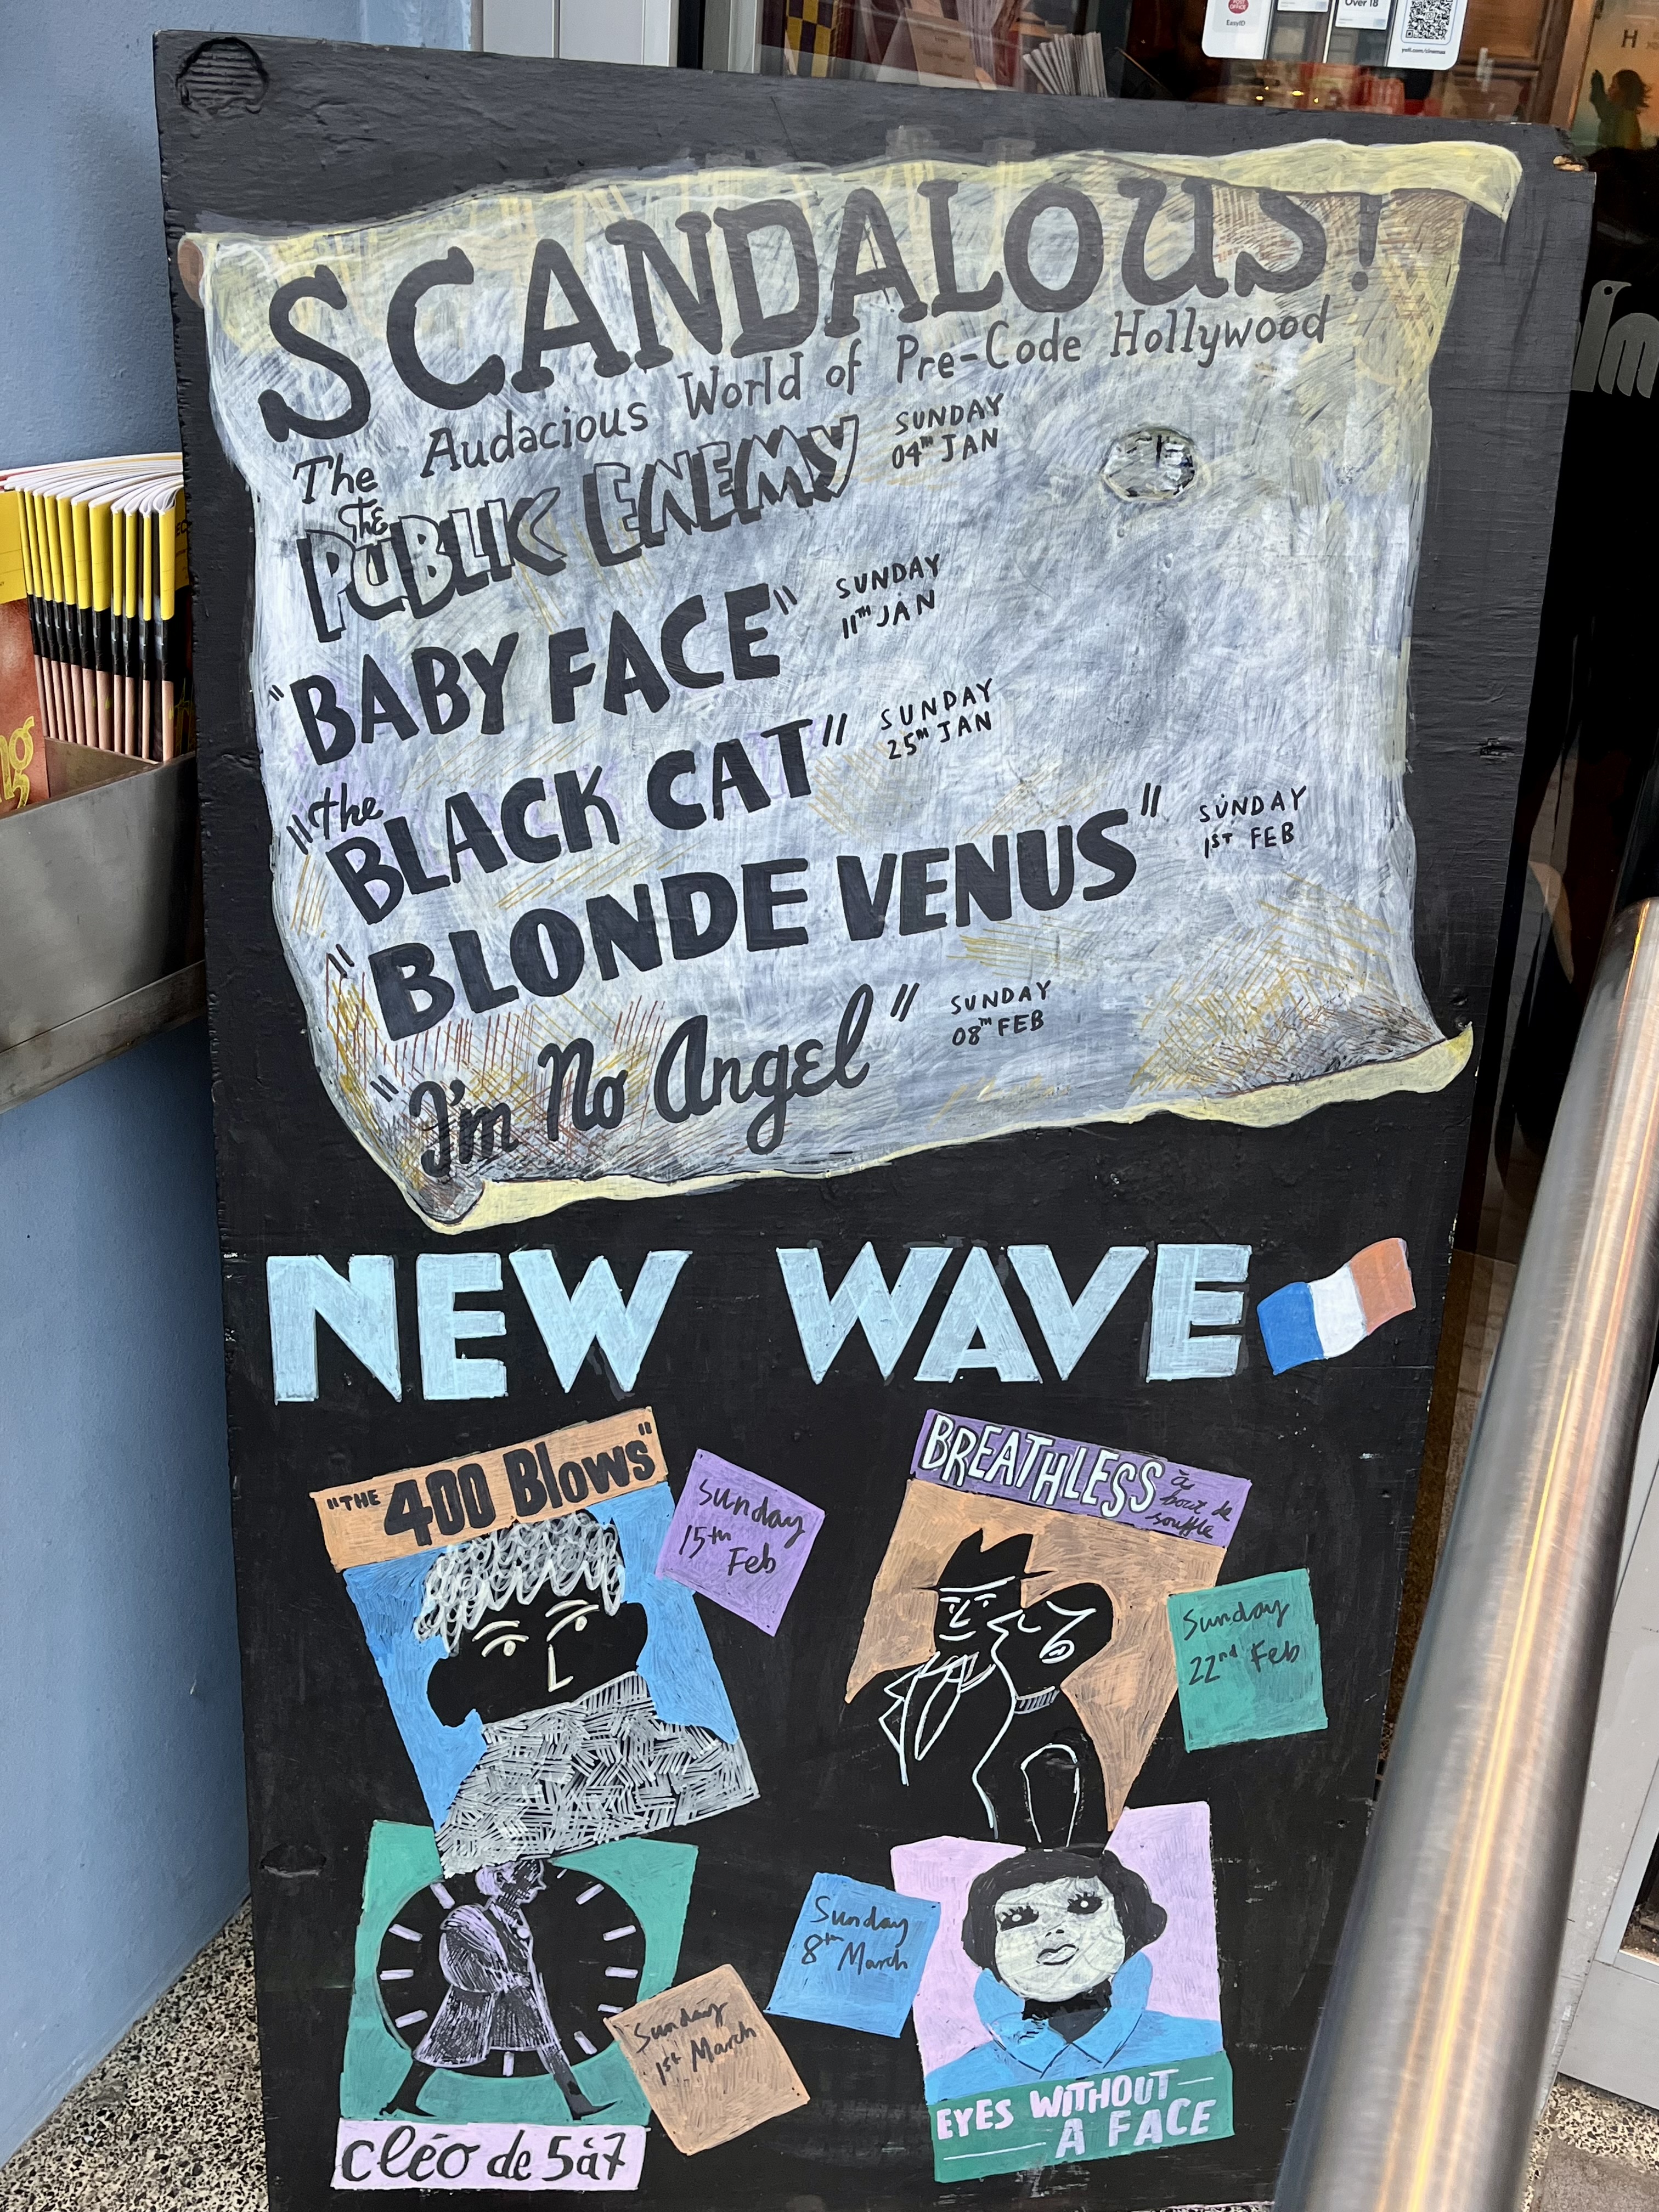 Over 18
EasyID
yoti.com/cinemas
H
SCANDALOUS!
The Audacious World of Pre-Code Hollywood
The
PUBLIC ENEMY
SUNDAY
04TH JAN
"BABY FACE"
SUNDAY
11TH JAN
"the
BLACK CAT"
SUNDAY
25TH JAN
"BLONDE VENUS"
SUNDAY
1ST FEB
"I'm No Angel"
SUNDAY
08TH FEB
NEW WAVE
"THE 400 Blows"
Sunday
15th
Feb
BREATHLESS
à
bout de
souffle
Sunday
22nd Feb
Sunday
8th March
Sunday
1st March
cléo de 5à7
EYES WITHOUT
A FACE